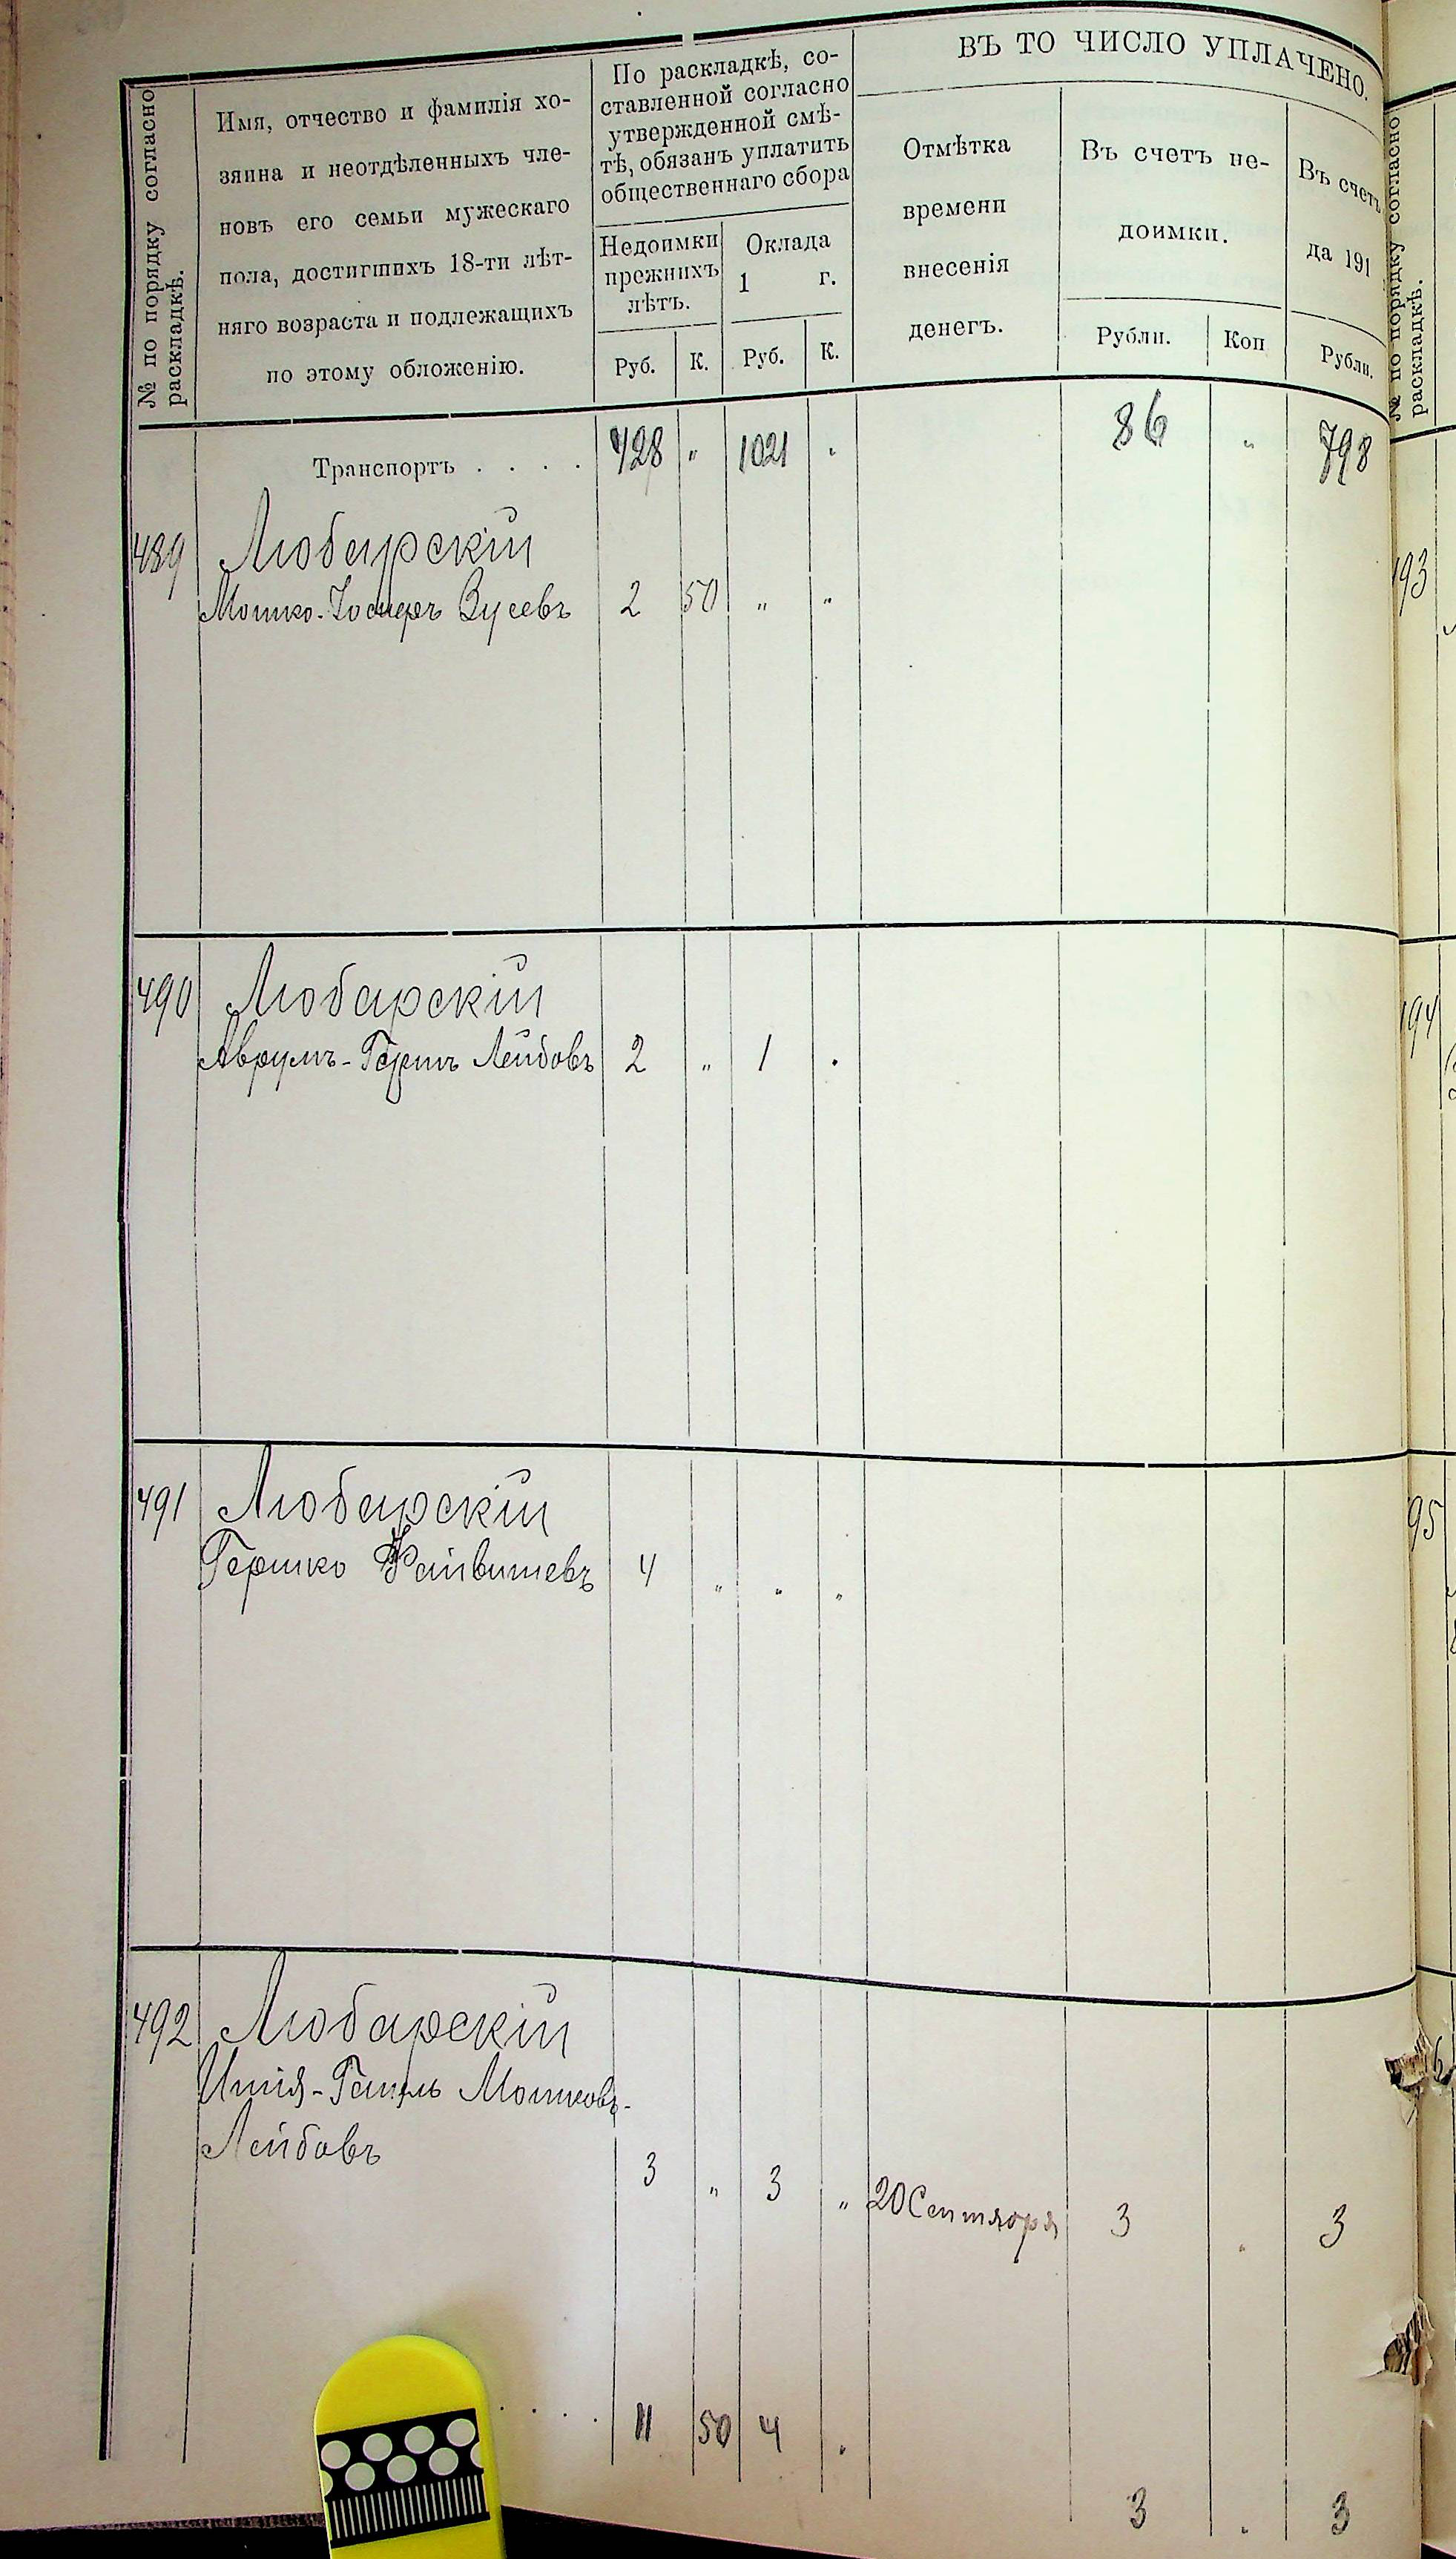 № по порядку согласно
раскладкѣ.
Имя, отчество и фамилія хо-
зяина и неотдѣленныхъ чле-
новъ его семьи мужескаго
пола, достигшихъ 18-ти лѣт-
няго возраста и подлежащихъ
по этому обложенію.
По раскладкѣ, со-
ставленной согласно
утвержденной смѣ-
тѣ, обязанъ уплатить
общественнаго сбора
Недоимки
прежнихъ
лѣтъ.
Оклада
1 г.
Руб. К. Руб. К.
ВЪ ТО ЧИСЛО УПЛАЧЕНО.
Отмѣтка
времени
внесенія
денегъ.
Въ счетъ не-
доимки.
Рубли. Коп
Въ счетъ
да 191
Рубли.
№ по порядку согласно
раскладкѣ.
Транспортъ . . . . 428 " 1021 . 86 " 798
489 Любарскій
Мошко-Іосифъ Зусевъ 2 50 " "
490 Любарскій
Аврумъ-Гершъ Лейбовъ 2 " 1 .
491 Любарскій
Гершко Файвишевъ 4 " " "
492 Любарскій
Мошковъ-
Лейбовъ
3 " 3 " 20 Сентября 3 . 3
. . . . 11 50 4 .
3 . 3
93
94
95